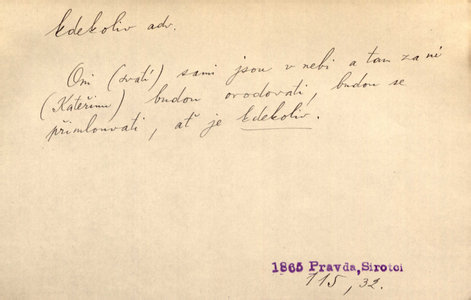 kdekoliv adv.
Oni (svatí) sami jsou v nebi a tam za ni
(Kateřinu) budou orodovati, budou se
přimlouvati, ať je kdekoliv.
1865 Pravda, Sirotci
115, 32.